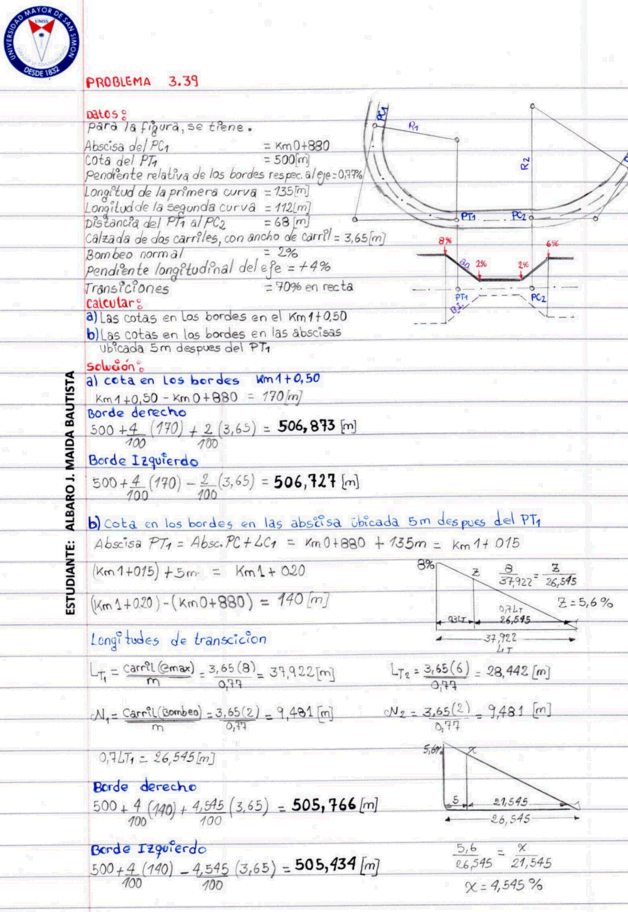 UNIVERSIDAD MAYOR DE SAN SIMON
UMSS
DESDE 1832
ESTUDIANTE: ALBARO J. MAIDA BAUTISTA
PROBLEMA 3.39
Datos:
Para la figura, se tiene.
Abscisa del PC1 = Km0+880
Cota del PT1 = 500[m]
Pendiente relativa de los bordes respec. al eje=0,77%
Longitud de la primera curva = 135[m]
Longitud de la segunda curva = 112[m]
Distancia del PT1 al PC2 = 68 [m]
Calzada de dos carriles, con ancho de carril = 3,65[m]
Bombeo normal = 2%
Pendiente longitudinal del eje = +4%
Transiciones = 70% en recta
PC1
R1
R2
PT1
PC2
8%
2%
2%
6%
PT1
PC2
Calcular:
a) Las cotas en los bordes en el Km1+0,50
b) Las cotas en los bordes en las abscisas
ubicada 5m despues del PT1
Solución:
a) cota en los bordes Km1+0,50
Km1+0,50 - Km0+880 = 170[m]
Borde derecho
500 + 4/100 (170) + 2/100 (3,65) = 506,873 [m]
Borde Izquierdo
500 + 4/100 (170) - 2/100 (3,65) = 506,727 [m]
b) Cota en los bordes en las abscisa ubicada 5m despues del PT1
Abscisa PT1 = Absc. PC + LC1 = Km0+880 + 135m = Km1+015
(Km1+015) + 5m = Km1+020
(Km1+020) - (Km0+880) = 140 [m]
8%
z
0,7LT
26,545
37,922
LT
8/37,922 = z/26,545
z = 5,6%
Longitudes de transcicion
LT1 = Carril(emax)/m = 3,65(8)/0,77 = 37,922[m]
LT2 = 3,65(6)/0,77 = 28,442 [m]
N1 = Carril(Bombeo)/m = 3,65(2)/0,77 = 9,481 [m]
N2 = 3,65(2)/0,77 = 9,481 [m]
0,7LT1 = 26,545[m]
5,6%
x
5
21,545
26,545
Borde derecho
500 + 4/100 (140) + 4,545/100 (3,65) = 505,766 [m]
Borde Izquierdo
500 + 4/100 (140) - 4,545/100 (3,65) = 505,434 [m]
5,6/26,545 = x/21,545
x = 4,545 %